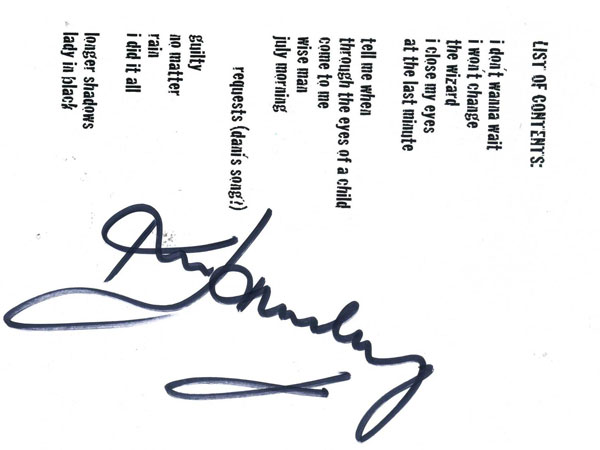 LIST OF CONTENTS:
i don't wanna wait
i won't change
the wizard
i close my eyes
at the last minute
tell me when
through the eyes of a child
come to me
wise man
july morning
requests (dani's song?)
guilty
no matter
rain
i did it all
longer shadows
lady in black